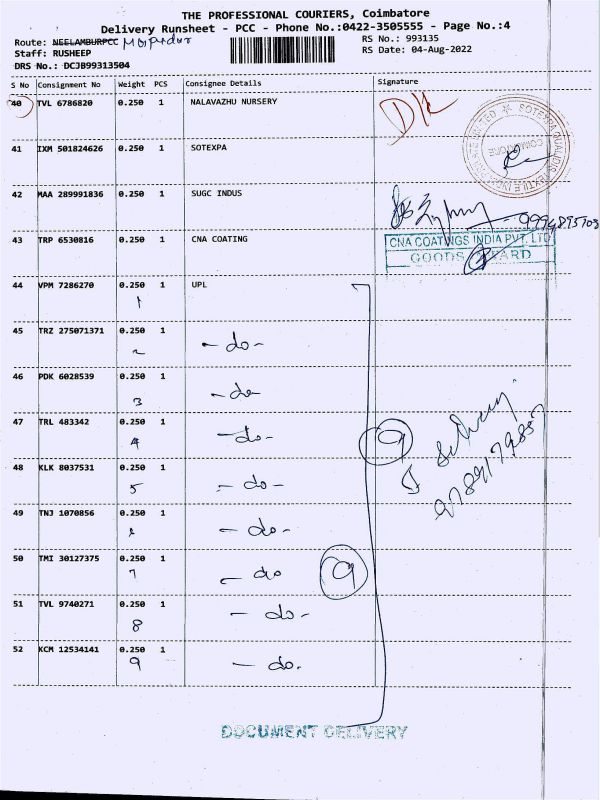 THE PROFESSIONAL COURIERS, Coimbatore
Delivery Runsheet - PCC - Phone No.:0422-3505555 - Page No.:4
Route: NEELAMBURPCC
RS No.: 993135
Staff: RUSHEEP
RS Date: 04-Aug-2022
DRS No.: DCJB99313504
S No Consignment No Weight PCS Consignee Details Signature
40 TVL 6786820 0.250 1 NALAVAZHU NURSERY
41 IXM 501824626 0.250 1 SOTEXPA
COIMBATORE
42 MAA 289991836 0.250 1 SUGC INDUS
43 TRP 6530816 0.250 1 CNA COATING
CNA COATINGS INDIA PVT. LTD
GOODS
44 VPM 7286270 0.250 1 UPL
1
45 TRZ 275071371 0.250 1 - do -
2
46 PDK 6028539 0.250 1 - do
3
47 TRL 483342 0.250 1 - do -
4 9
48 KLK 8037531 0.250 1 - do -
5
49 TNJ 1070856 0.250 1 - do -
50 TMI 30127375 0.250 1 - do 9
7
51 TVL 9740271 0.250 1 - do -
8
52 KCM 12534141 0.250 1 - do.
9
DOCUMENT DELIVERY